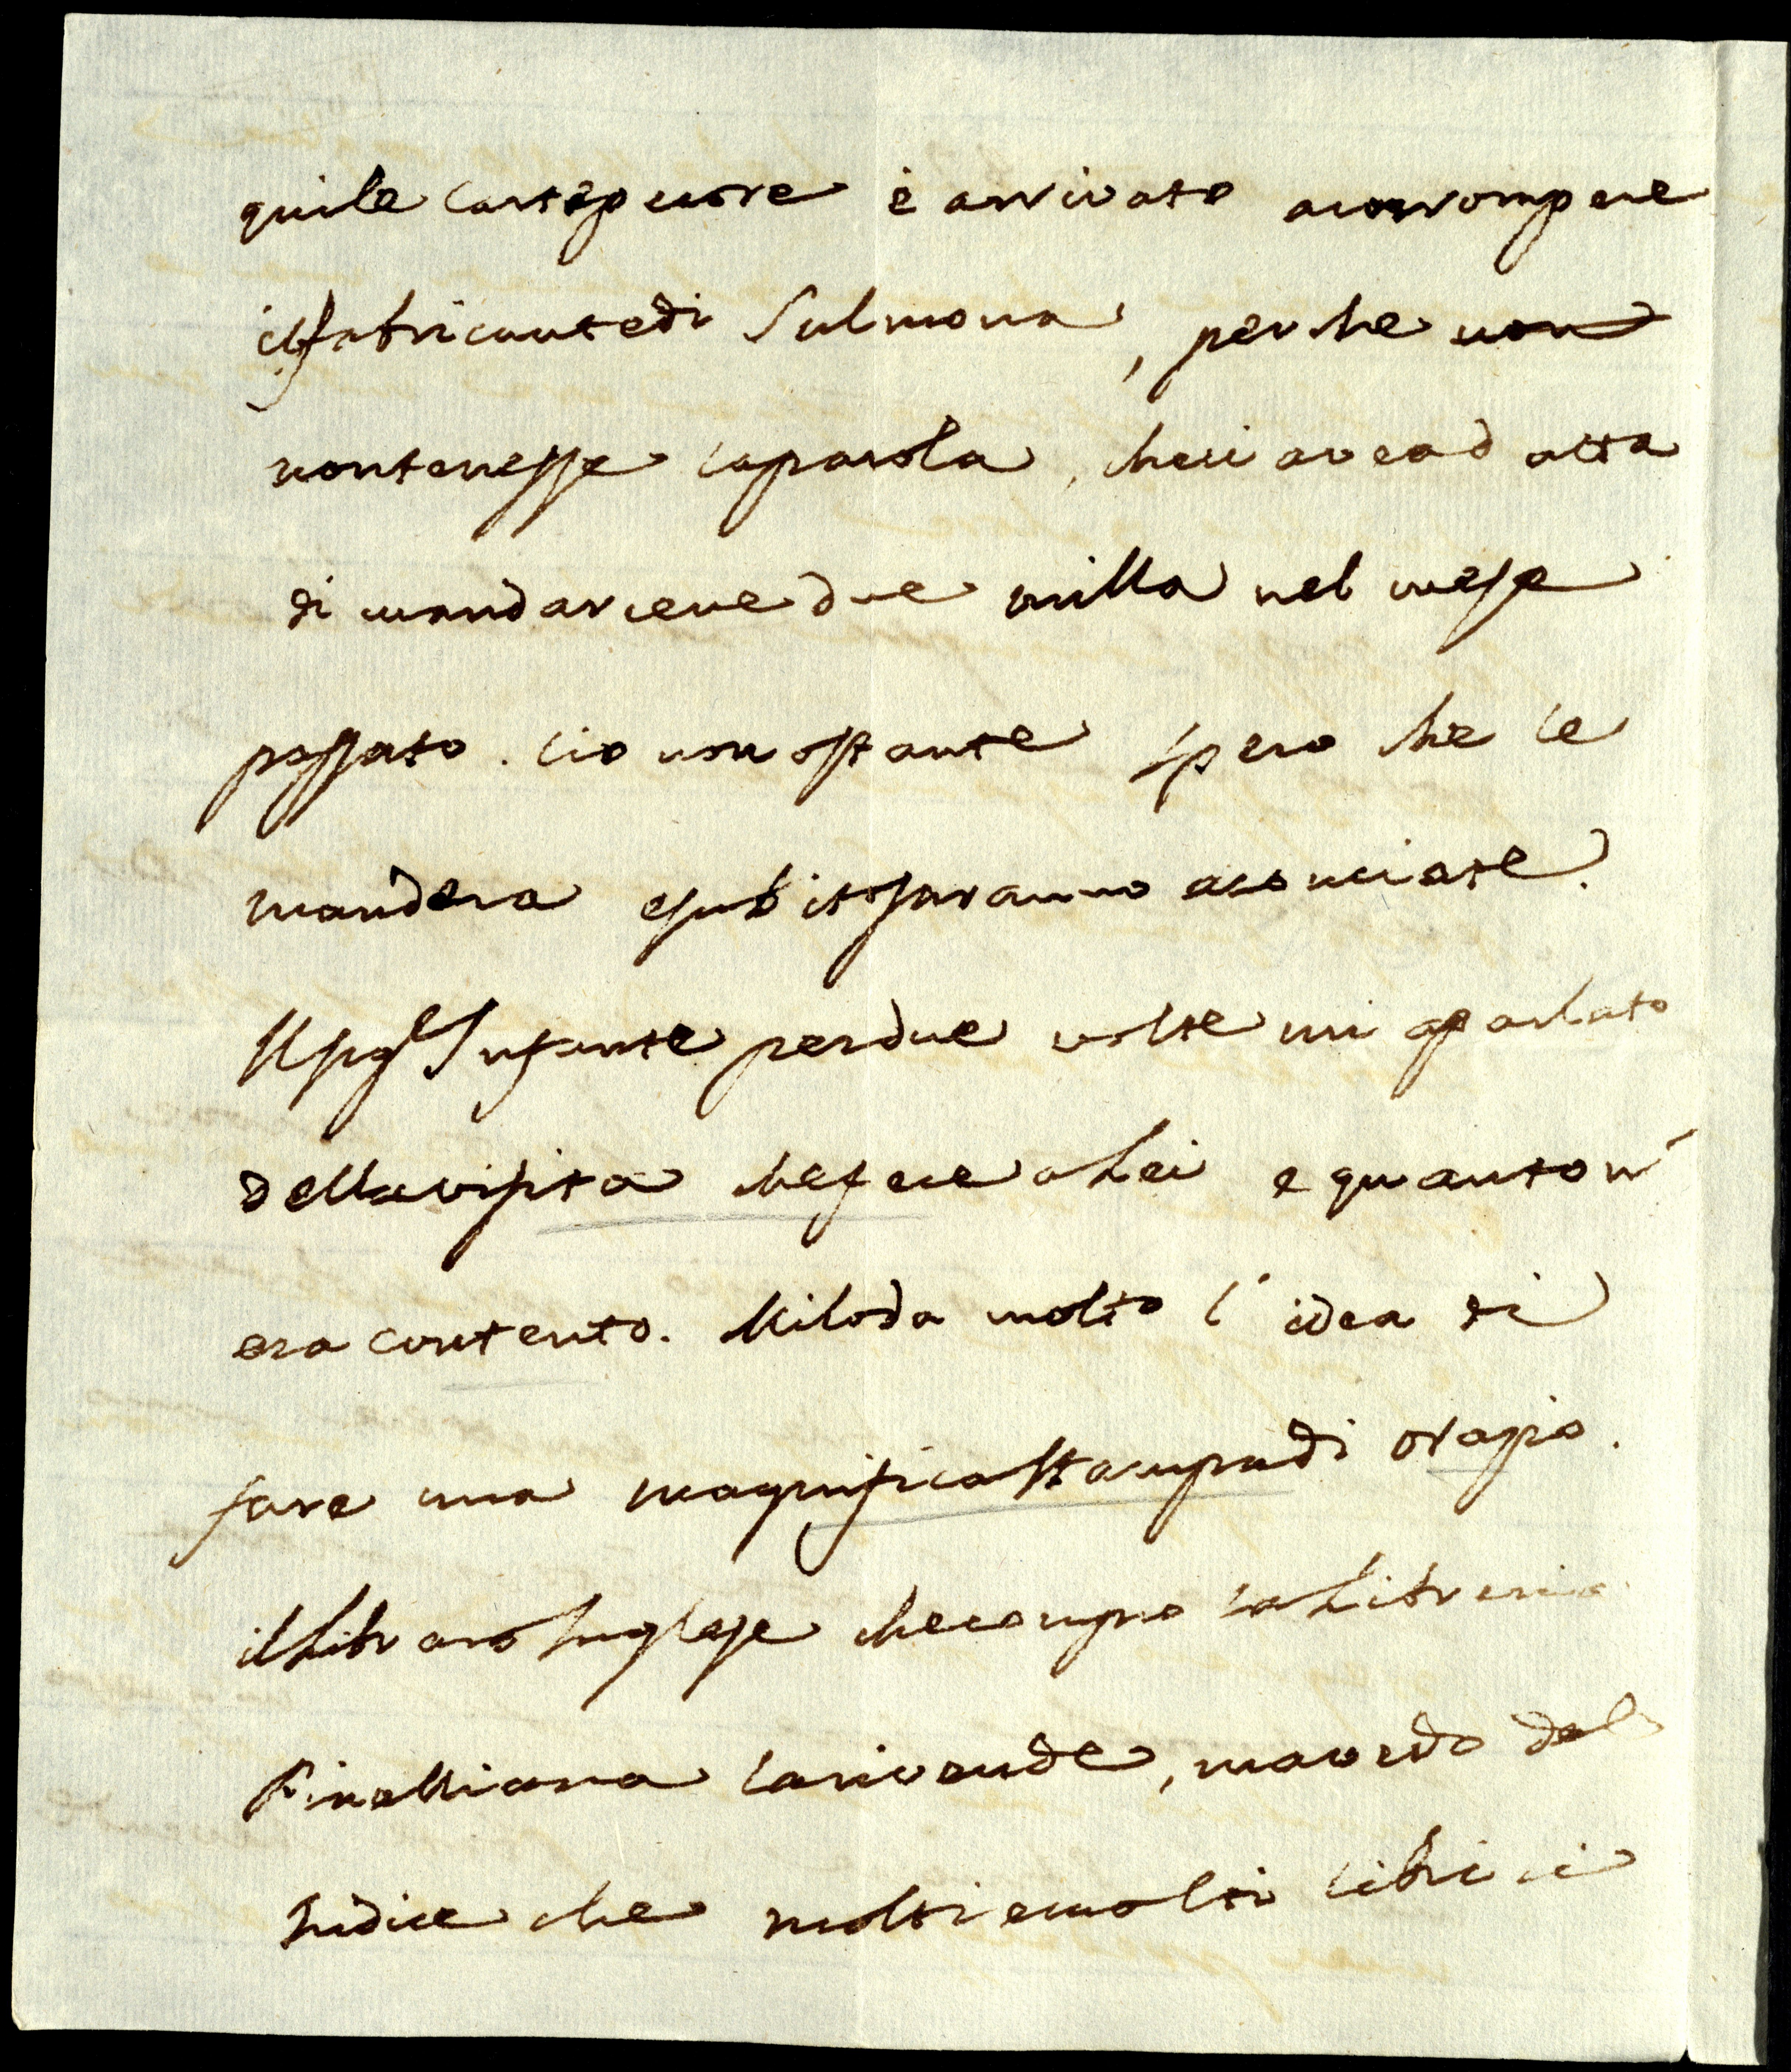 qui le cartepecore è arrivato a corrompere
il fabricante di Sulmona, perche non
non tenesse la parola, che ci avea data
di mandarcene due milla nel mese
passato. Cio non ostante spero che le
mandera e subito saranno acconciate.
Il Sig.e Infante per due volte mi a parlato
della visita che fece a Lei e quanto n'
era contento. Mi loda molto l'idea di
fare una magnifica stampa di Orazio.
il Libraro Inglese che compro la Libreria
Pinelliana la rivende, ma vedo dal
Indice che molti e molti libri ci